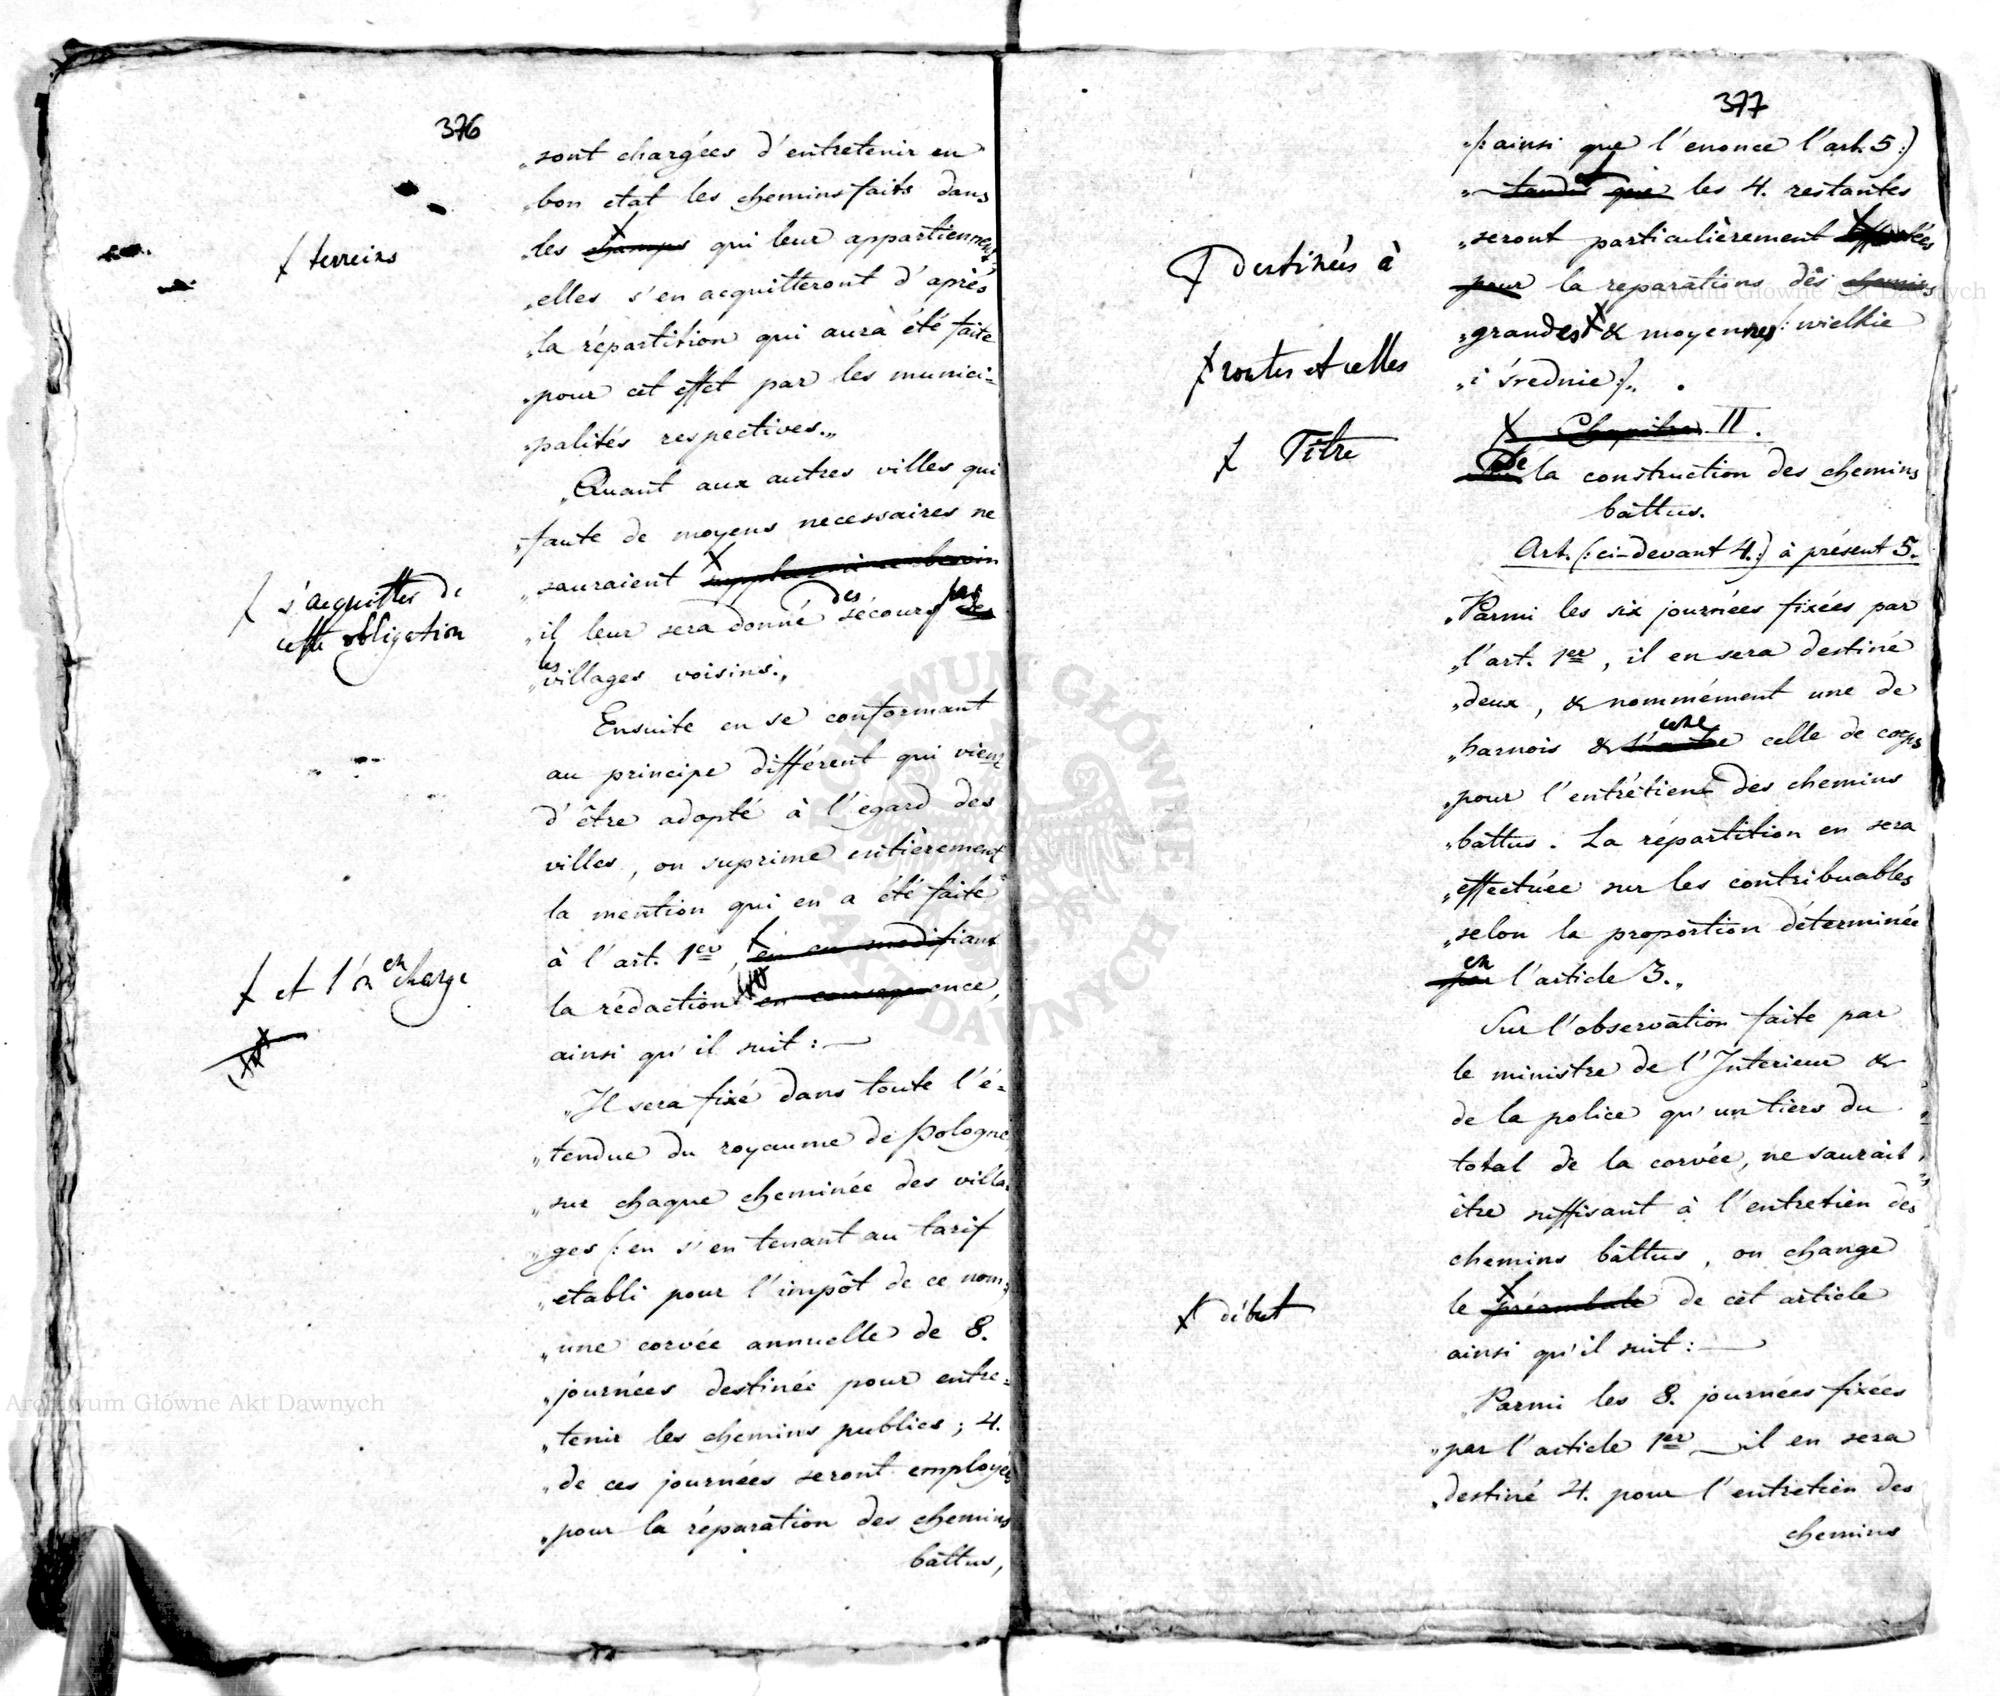 376
„sont chargées d'entretenir en
„bon etat les chemins faits dans
„les champs qui leur appartiennent
ꝉ terreins
„elles s'en acquitteront d'après
„la répartition qui aura été faite
„pour cet effet par les munici=
„palités respectives.„
„Quant aux autres villes qui
„faute de moyens necessaires ne
„sauraient suppléer à ce besoin
ꝉ s'acquitter de
cette obligation
„il leur sera donné des sécours par
les
„villages voisins.„
Ensuite en se conformant
au principe différent qui vient
d'être adopté à l'égard des
villes, on suprime entièrement
la mention qui en a été faite
à l'art. 1er, en en modifiant
ꝉ et l'on en charge
la rédaction en consequence,
ainsi qu'il suit: —
„Il sera fixé dans toute l'é=
„tendue du royaume de Pologne,
„sur chaque cheminée des villa=
„ges /: en s'en tenant au tarif
„etabli pour l'impôt de ce nom:/
„une corvée annuelle de 8.
„journées destinée pour entre=
„tenir les chemins publics; 4.
„de ces journées seront employées
„pour la réparation des chemins
bâttus,
377
„/: ainsi que l'enonce l'art. 5:/
„tandis que et les 4. restantes
„seront particulièrement affectées
ꝉ destinées à
„pour la reparations des chemins
„grandes ꝉ & moyennes /: wielkie
ꝉ routes et celles
„i średnie:/„.
ꝉ Chapitre II.
ꝉ Titre
De la construction des chemins
bâttus.
Art. (: ci-devant 4.:) à présent 5.
„Parmi les six journées fixées par
„l'art. 1er, il en sera destiné
„deux, & nommément une de
„harnois & l'autre une celle de corps
„pour l'entrétient des chemins
„bâttus. La répartition en sera
„effectuée sur les contribuables
„selon la proportion déterminée
en
par l'article 3.„
Sur l'observation faite par
le ministre de l'Interieur &
de la police qu'un tiers du
total de la corvée, ne saurait
être suffisant à l'entretien des
chemins bâttus, on change
le préambule de cet article
ꝉ début
ainsi qu'il suit: —
„Parmi les 8. journées fixées
„par l'article 1er — il en sera
„destiné 4. pour l'entretien des
chemins
Archiwum Główne Akt Dawnych